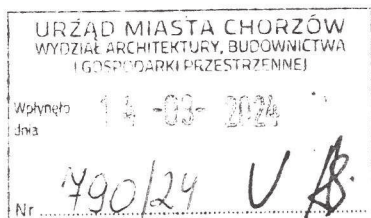 URZĄD MIASTA CHORZÓW
WYDZIAŁ ARCHITEKTURY, BUDOWNICTWA
I GOSPODARKI PRZESTRZENNEJ
Wpłynęło
dnia
-03- 2024
Nr 790/24